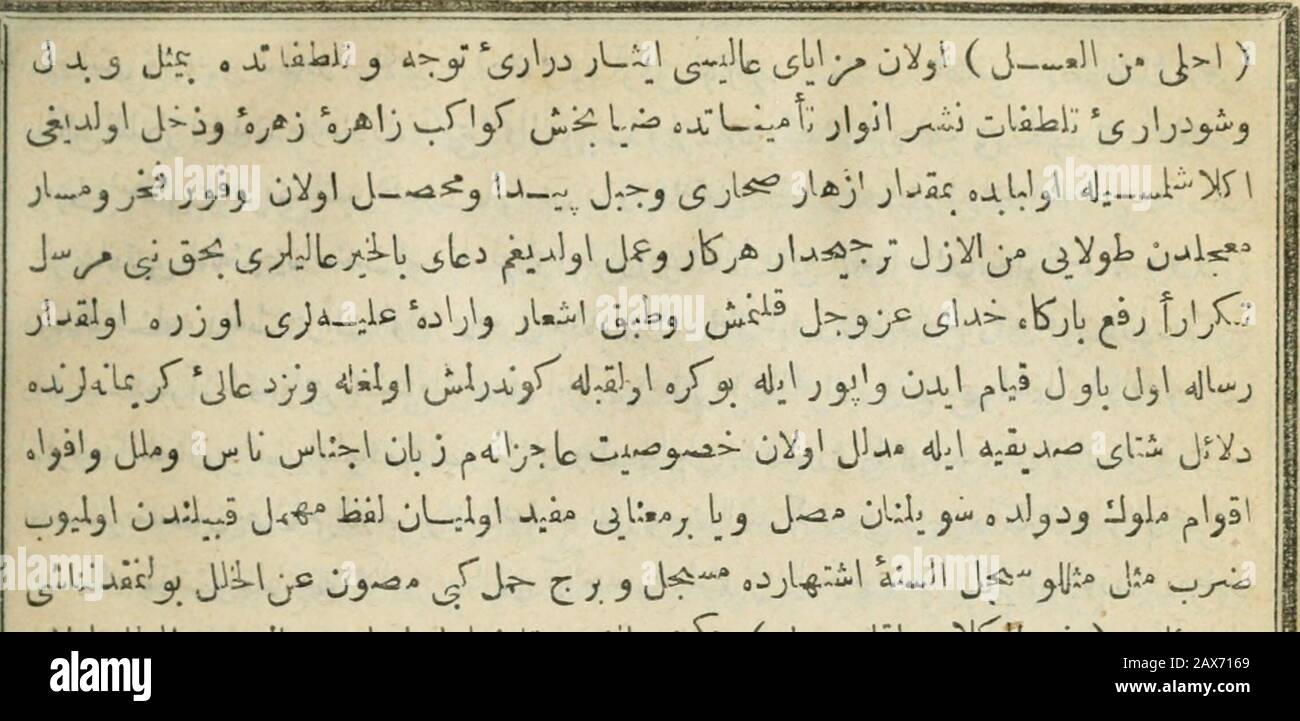 ( احلی من العســل ) اولان مزایای عالیسی ایثـار دراریٔ توجه و تلطفاتده بیمثل و بدل
وشودراریٔ تلطفات نشر انوار تأمیناتده ضیا بخش کواکب زاهرهٔ زهرهٔ وذخل اولدیغی
اکلاشلمسـیله اولبابده بمقدار ازهار صحاری وجبل پیـدا ومحصـل اولان وفور فخر ومسار
معجلدن طولایی من الازل ترجیحدار هرکار وعمل اولدیغم دعای بالخیرعالیلری بحق نبی مرسل
تکراراً رفع بارکاه خدای عزوجل قلنمش وطبق اشعار وارادهٔ علیـه‌لری اوزره اولقدار
رساله اول باول قیام ایدن واپور ایله بوکره اولقبله کوندرلمش اولمغله ونزد عالیٔ کریمانه‌لرنده
دلائل شتای صدیقیه ایله مدلل اولان خصوصیت عاجزانه‌م زبان اجناس ناس وملل وافواه
اقوام ملوك ودولده سویلنان مصل ویا برمعنایی مفید اولمیان لفظ مهمل قبیلندن اولمیوب
ضرب مثل مثللو سجل السنهٔ اشتهارده مسجل و برج حمل کبی مصون عن الخلل بولنمقدنناشی
alamy
Image ID: 2AX7169
www.alamy.com